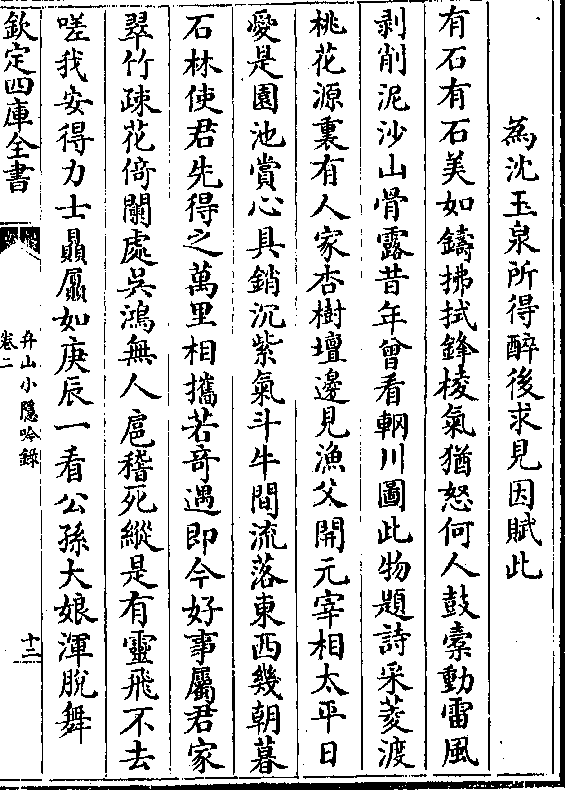 為沈玉泉所得醉後求見因賦此
有石有石美如鑄拂拭鋒棱氣猶怒何人鼓橐動雷風
剥削泥沙山骨露昔年曾看輞川圖此物題詩采菱渡
桃花源裏有人家杏樹壇邊見漁父開元宰相太平日
愛是園池賞心具銷沉紫氣斗牛間流落東西幾朝暮
石林使君先得之萬里相攜若竒遇即今好事屬君家
翠竹疎花倚闌處吳鴻無人扈稽死縱是有靈飛不去
嗟我安得力士贔屭如庚辰一看公孫大娘渾脫舞
欽定四庫全書
弁山小隱吟録
卷二
十二